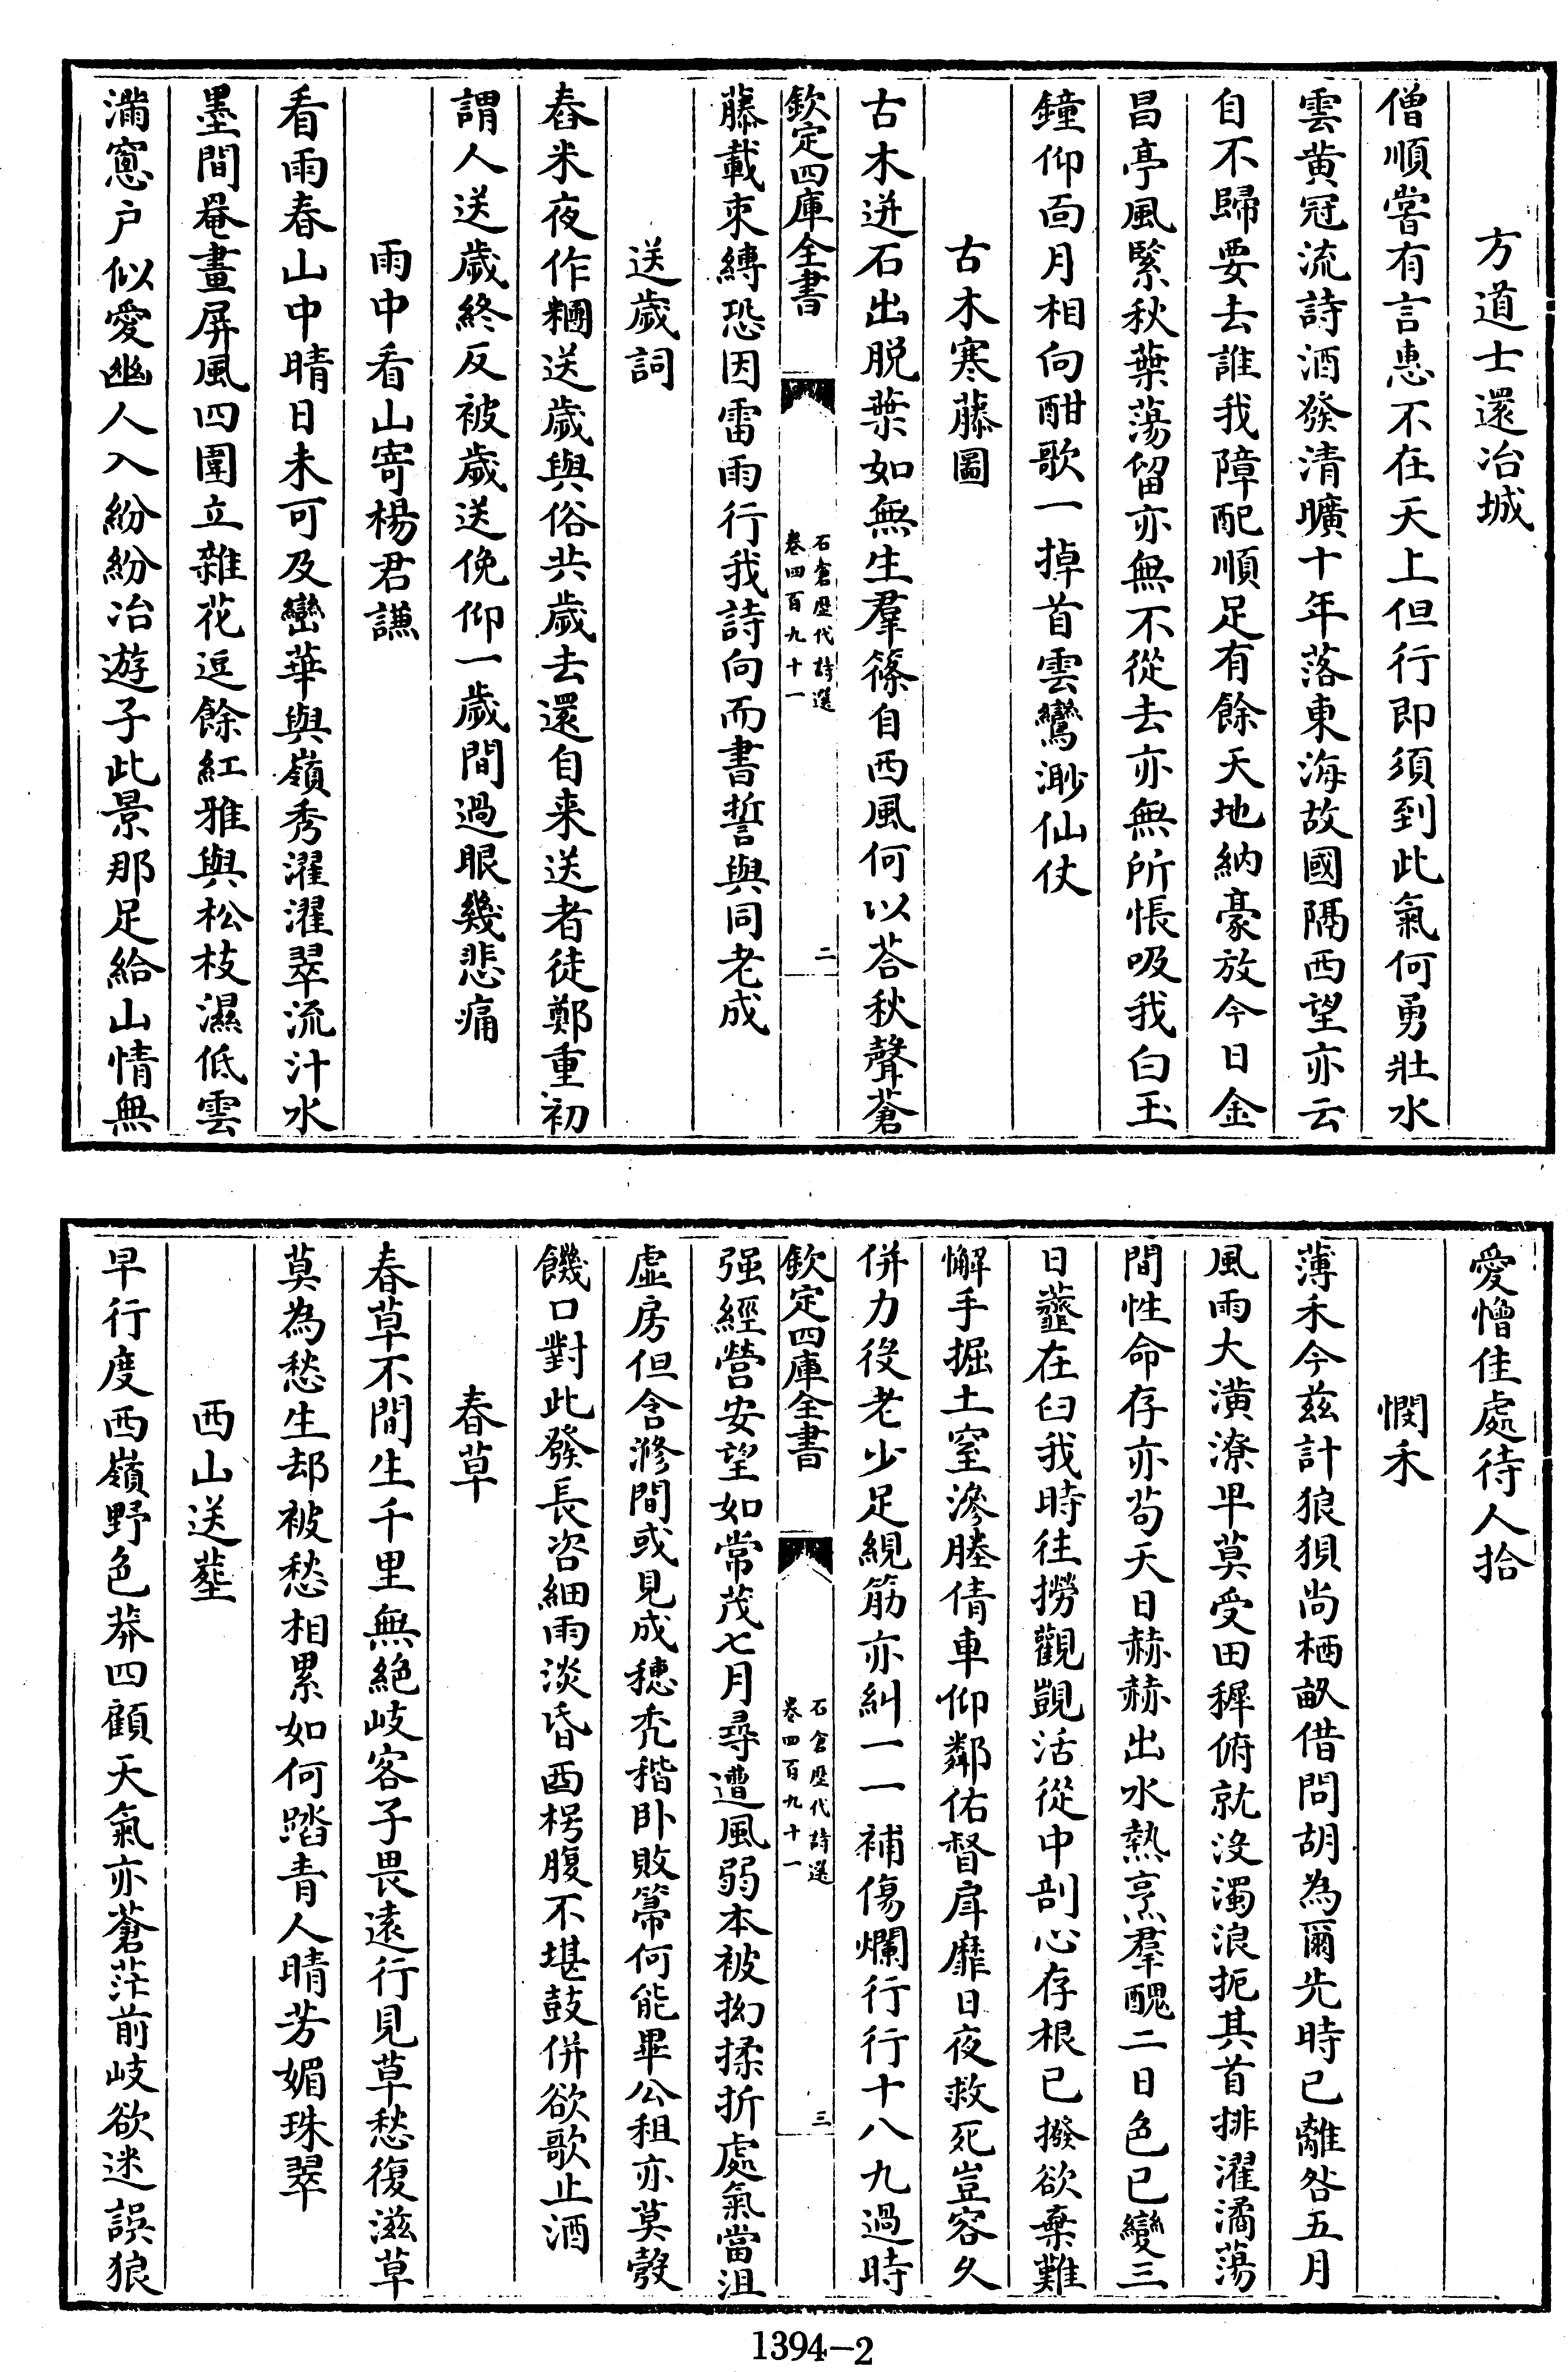 方道士還冶城
僧順嘗有言惠不在天上但行即須到此氣何勇壯水
雲黄冠流詩酒發清曠十年落東海故國隔西望亦云
自不歸要去誰我障配順足有餘天地納豪放今日金
昌亭風緊秋葉蕩留亦無不從去亦無所悵吸我白玉
鐘仰面月相向酣歌一掉首雲鸞渺仙仗
古木寒藤圖
古木迸石出脱葉如無生羣篠自西風何以荅秋聲蒼
欽定四庫全書
石倉歴代詩選
卷四百九十一
二
藤載束縛恐因雷雨行我詩向而書誓與同老成
送歲詞
舂米夜作糰送歲與俗共歲去還自来送者徒鄭重初
謂人送歲終反被歲送俛仰一歲間過眼幾悲痛
雨中看山寄楊君謙
看雨春山中晴日未可及巒華與嶺秀濯濯翠流汁水
墨間罨畫屏風四圍立雜花逗餘紅雅與松枝濕低雲
滿窻户似愛幽人入紛紛冶遊子此景那足給山情無
愛憎佳處待人拾
憫禾
薄禾今兹計狼狽尚栖畝借問胡為爾先時已離咎五月
風雨大潢潦早莫受田穉俯就没濁浪扼其首排濯潏蕩
間性命存亦苟天日赫赫出水熱烹羣醜二日色已變三
日虀在臼我時往撈觀覬活從中剖心存根已撥欲棄難
懈手掘土窒滲塍倩車仰鄰佑督肩靡日夜救死豈容久
併力役老少足絸筋亦糾一一補傷爛行行十八九過時
欽定四庫全書
石倉歴代詩選
卷四百九十一
三
强經營安望如常茂七月尋遭風弱本被拗揉折處氣當沮
虚房但含滫間或見成穂秃稭卧敗箒何能畢公租亦莫嗀
饑口對此發長咨細雨淡昏酉枵腹不堪鼓併欲歌止酒
春草
春草不間生千里無絶岐客子畏遠行見草愁復滋草
莫為愁生却被愁相累如何踏青人晴芳媚珠翠
西山送塟
早行度西嶺野色莽四顧天氣亦蒼茫前岐欲迷誤狼
1394-2